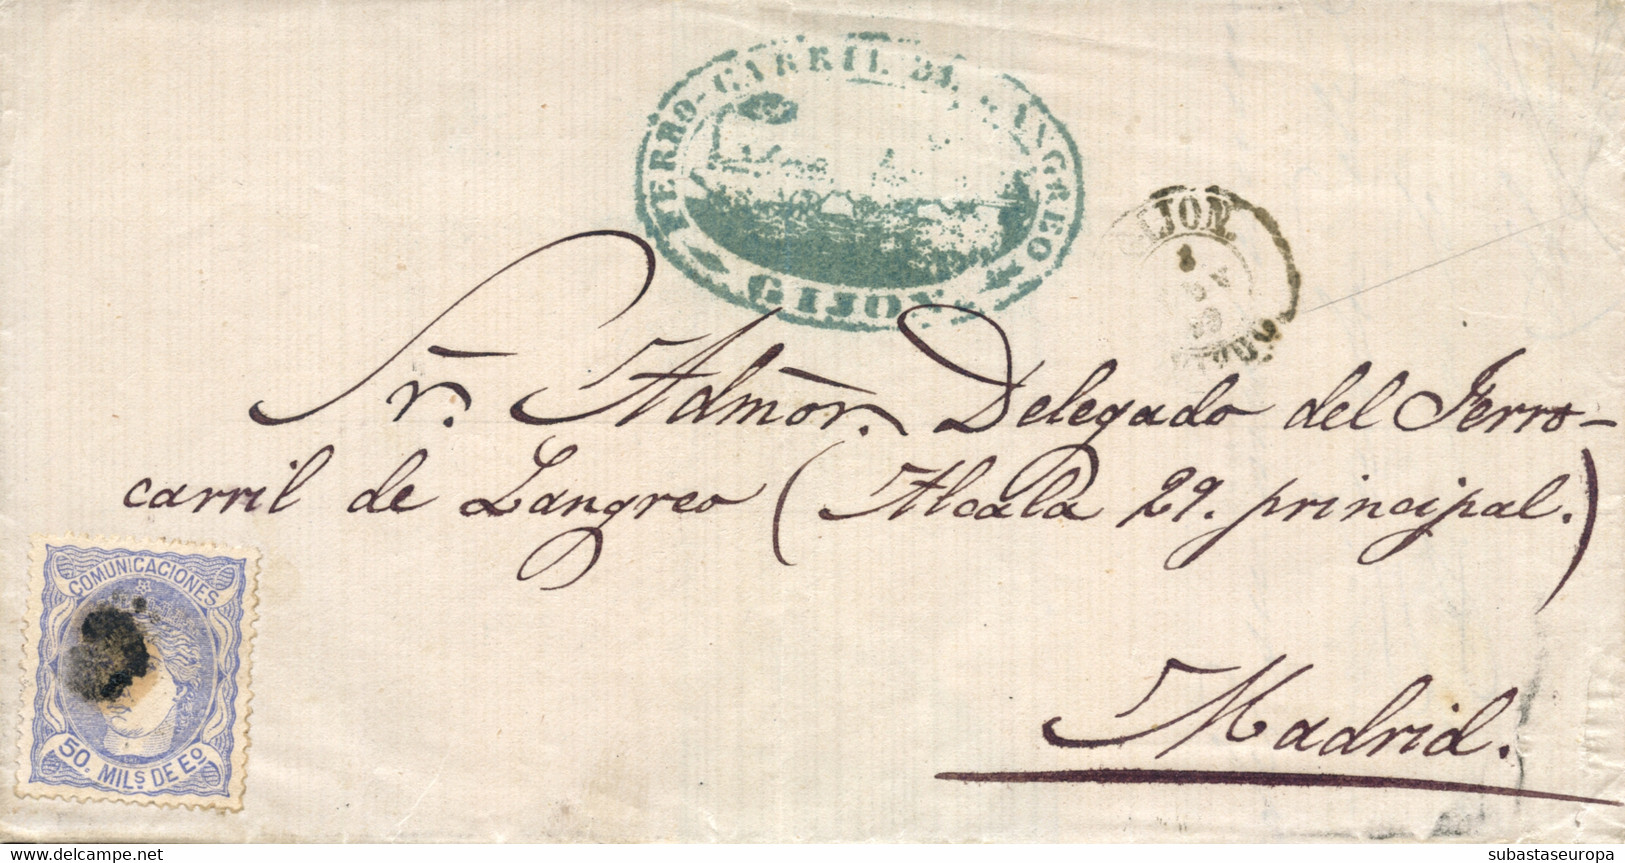 FERRO-CARRIL DE LANGREO
GIJON
GIJON.
Sr. Admor. Delegado del Ferro-
carril de Langreo (Alcalá 29. principal.)
Madrid.
COMUNICACIONES
50. MILS DE Eo
subastaseuropa